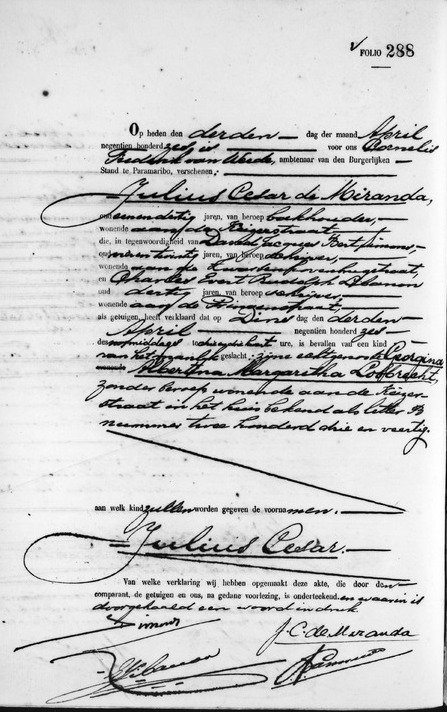 FOLIO 288
Op heden den derden dag der maand April
negentien honderd zes is voor ons Cornelis
Frederik van ambtenaar van den Burgerlijken
Stand te Paramaribo, verschenen:
Julius Cesar de Miranda,
oud eenendertig jaren, van beroep boekhouder,
wonende aan de Keizerstraat,
die, in tegenwoordigheid van Daniel Jacques
oud jaren, van beroep schrijver,
wonende aan de Zwartenhovenbrugstraat,
en Charles Evert Rudolph
oud dertig jaren, van beroep schrijver
wonende aan de
als getuigen, heeft verklaard dat op Dins dag den derden
April negentien honderd zes
des middags te ure, is bevallen van een kind
van het mannelijk geslacht zijne echtgenoote Georgina
Albertina Margaritha
zonder beroep wonende aan de Keizer-
straat in het huis bekend als letter
nummer twee honderd drie en veertig.
aan welk kind zullen worden gegeven de voornamen.
Julius Cesar.
Van welke verklaring wij hebben opgemaakt deze akte, die door den
comparant, de getuigen en ons, na gedane voorlezing, is onderteekend. en waarin is
doorgehaald een woord in druk.
J. C. de Miranda